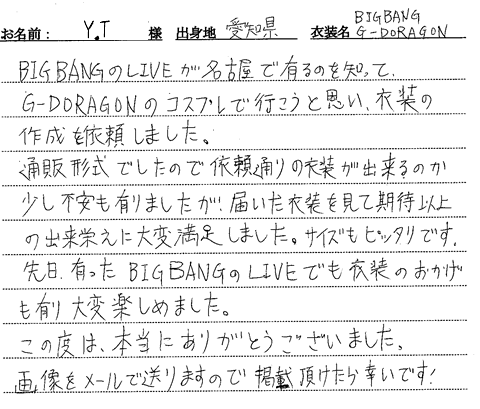 お名前： Y.T 様 出身地 愛知県 衣装名 BIGBANG
G-DORAGON
BIGBANGのLIVEが名古屋で有るのを知って、
G-DORAGONのコスプレで行こうと思い、衣装の
作成を依頼しました。
通販形式でしたので依頼通りの衣装が出来るのか
少し不安も有りましたが！届いた衣装を見て期待以上
の出来栄えに大変満足しました。サイズもピッタリです。
先日、有ったBIGBANGのLIVEでも衣装のおかげ
も有り大変楽しめました。
この度は、本当にありがとうございました。
画像をメールで送りますので掲載頂けたら幸いです！